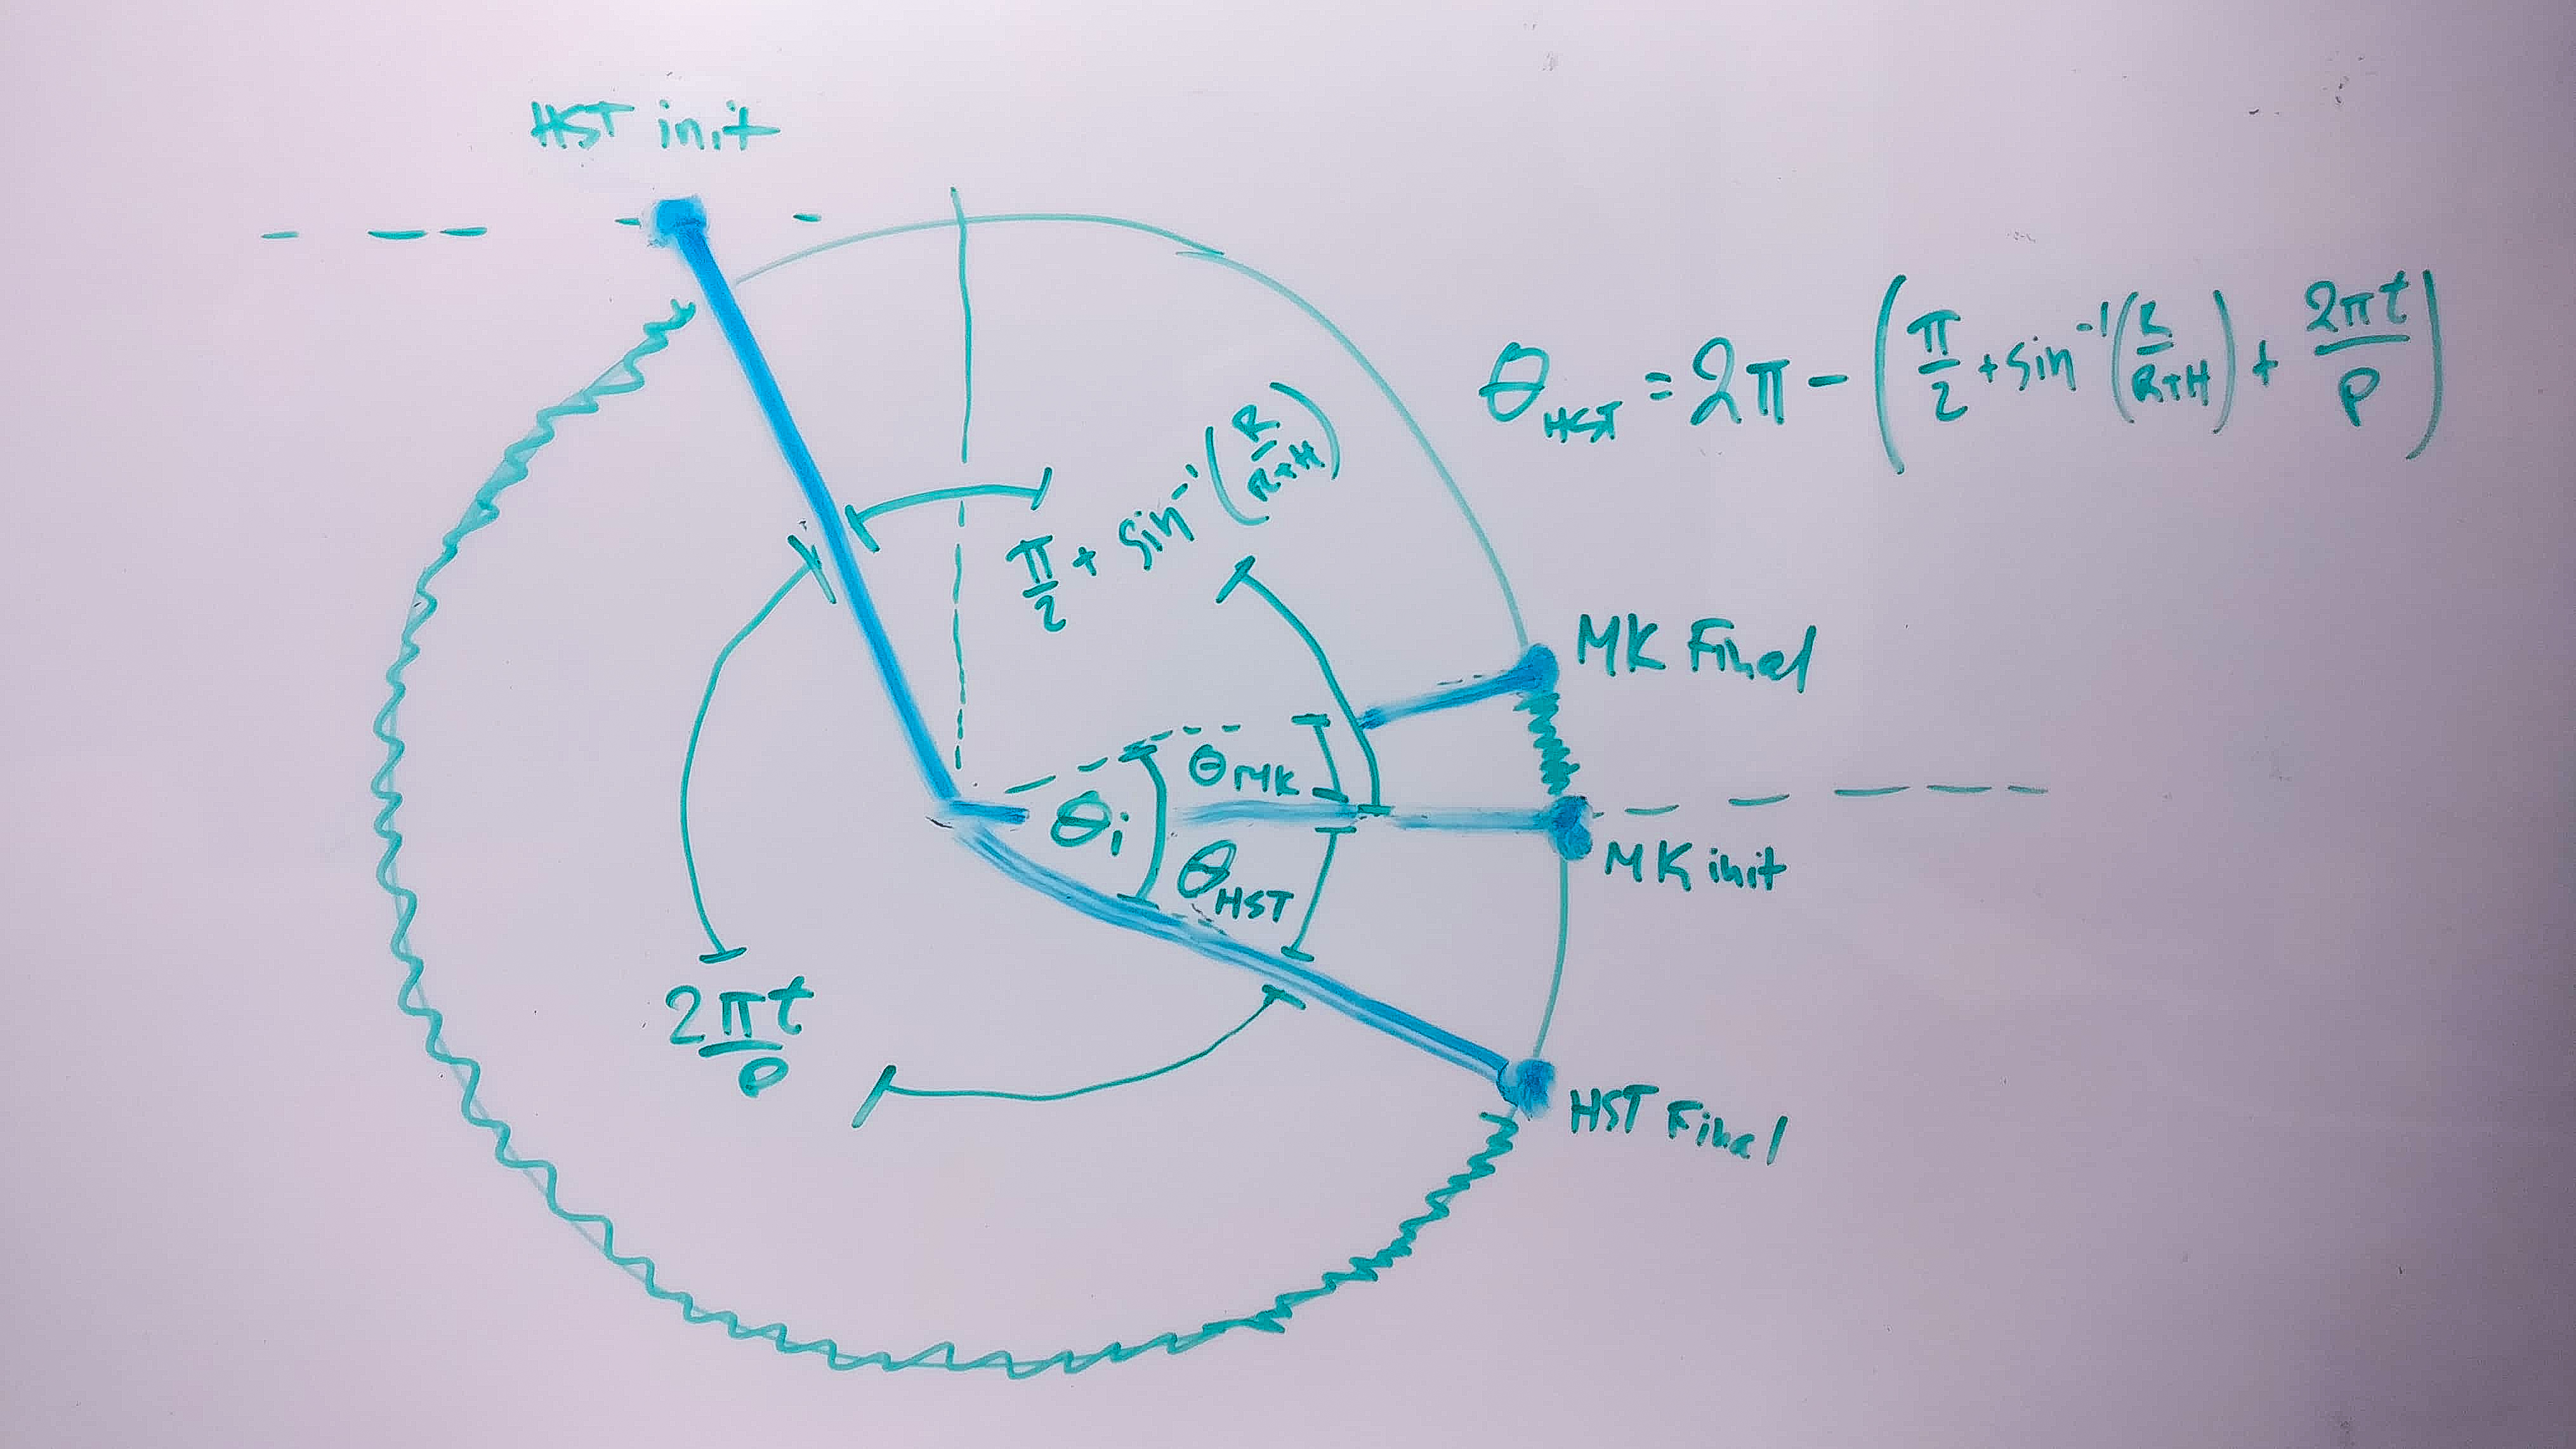 HST init
θ_HST = 2π - (π/2 + sin⁻¹(R/(R+H)) + 2πt/P)
π/2 + sin⁻¹(R/(R+H))
MK Final
θ_MK
θ_i
θ_HST
MK init
2πt/P
HST Final